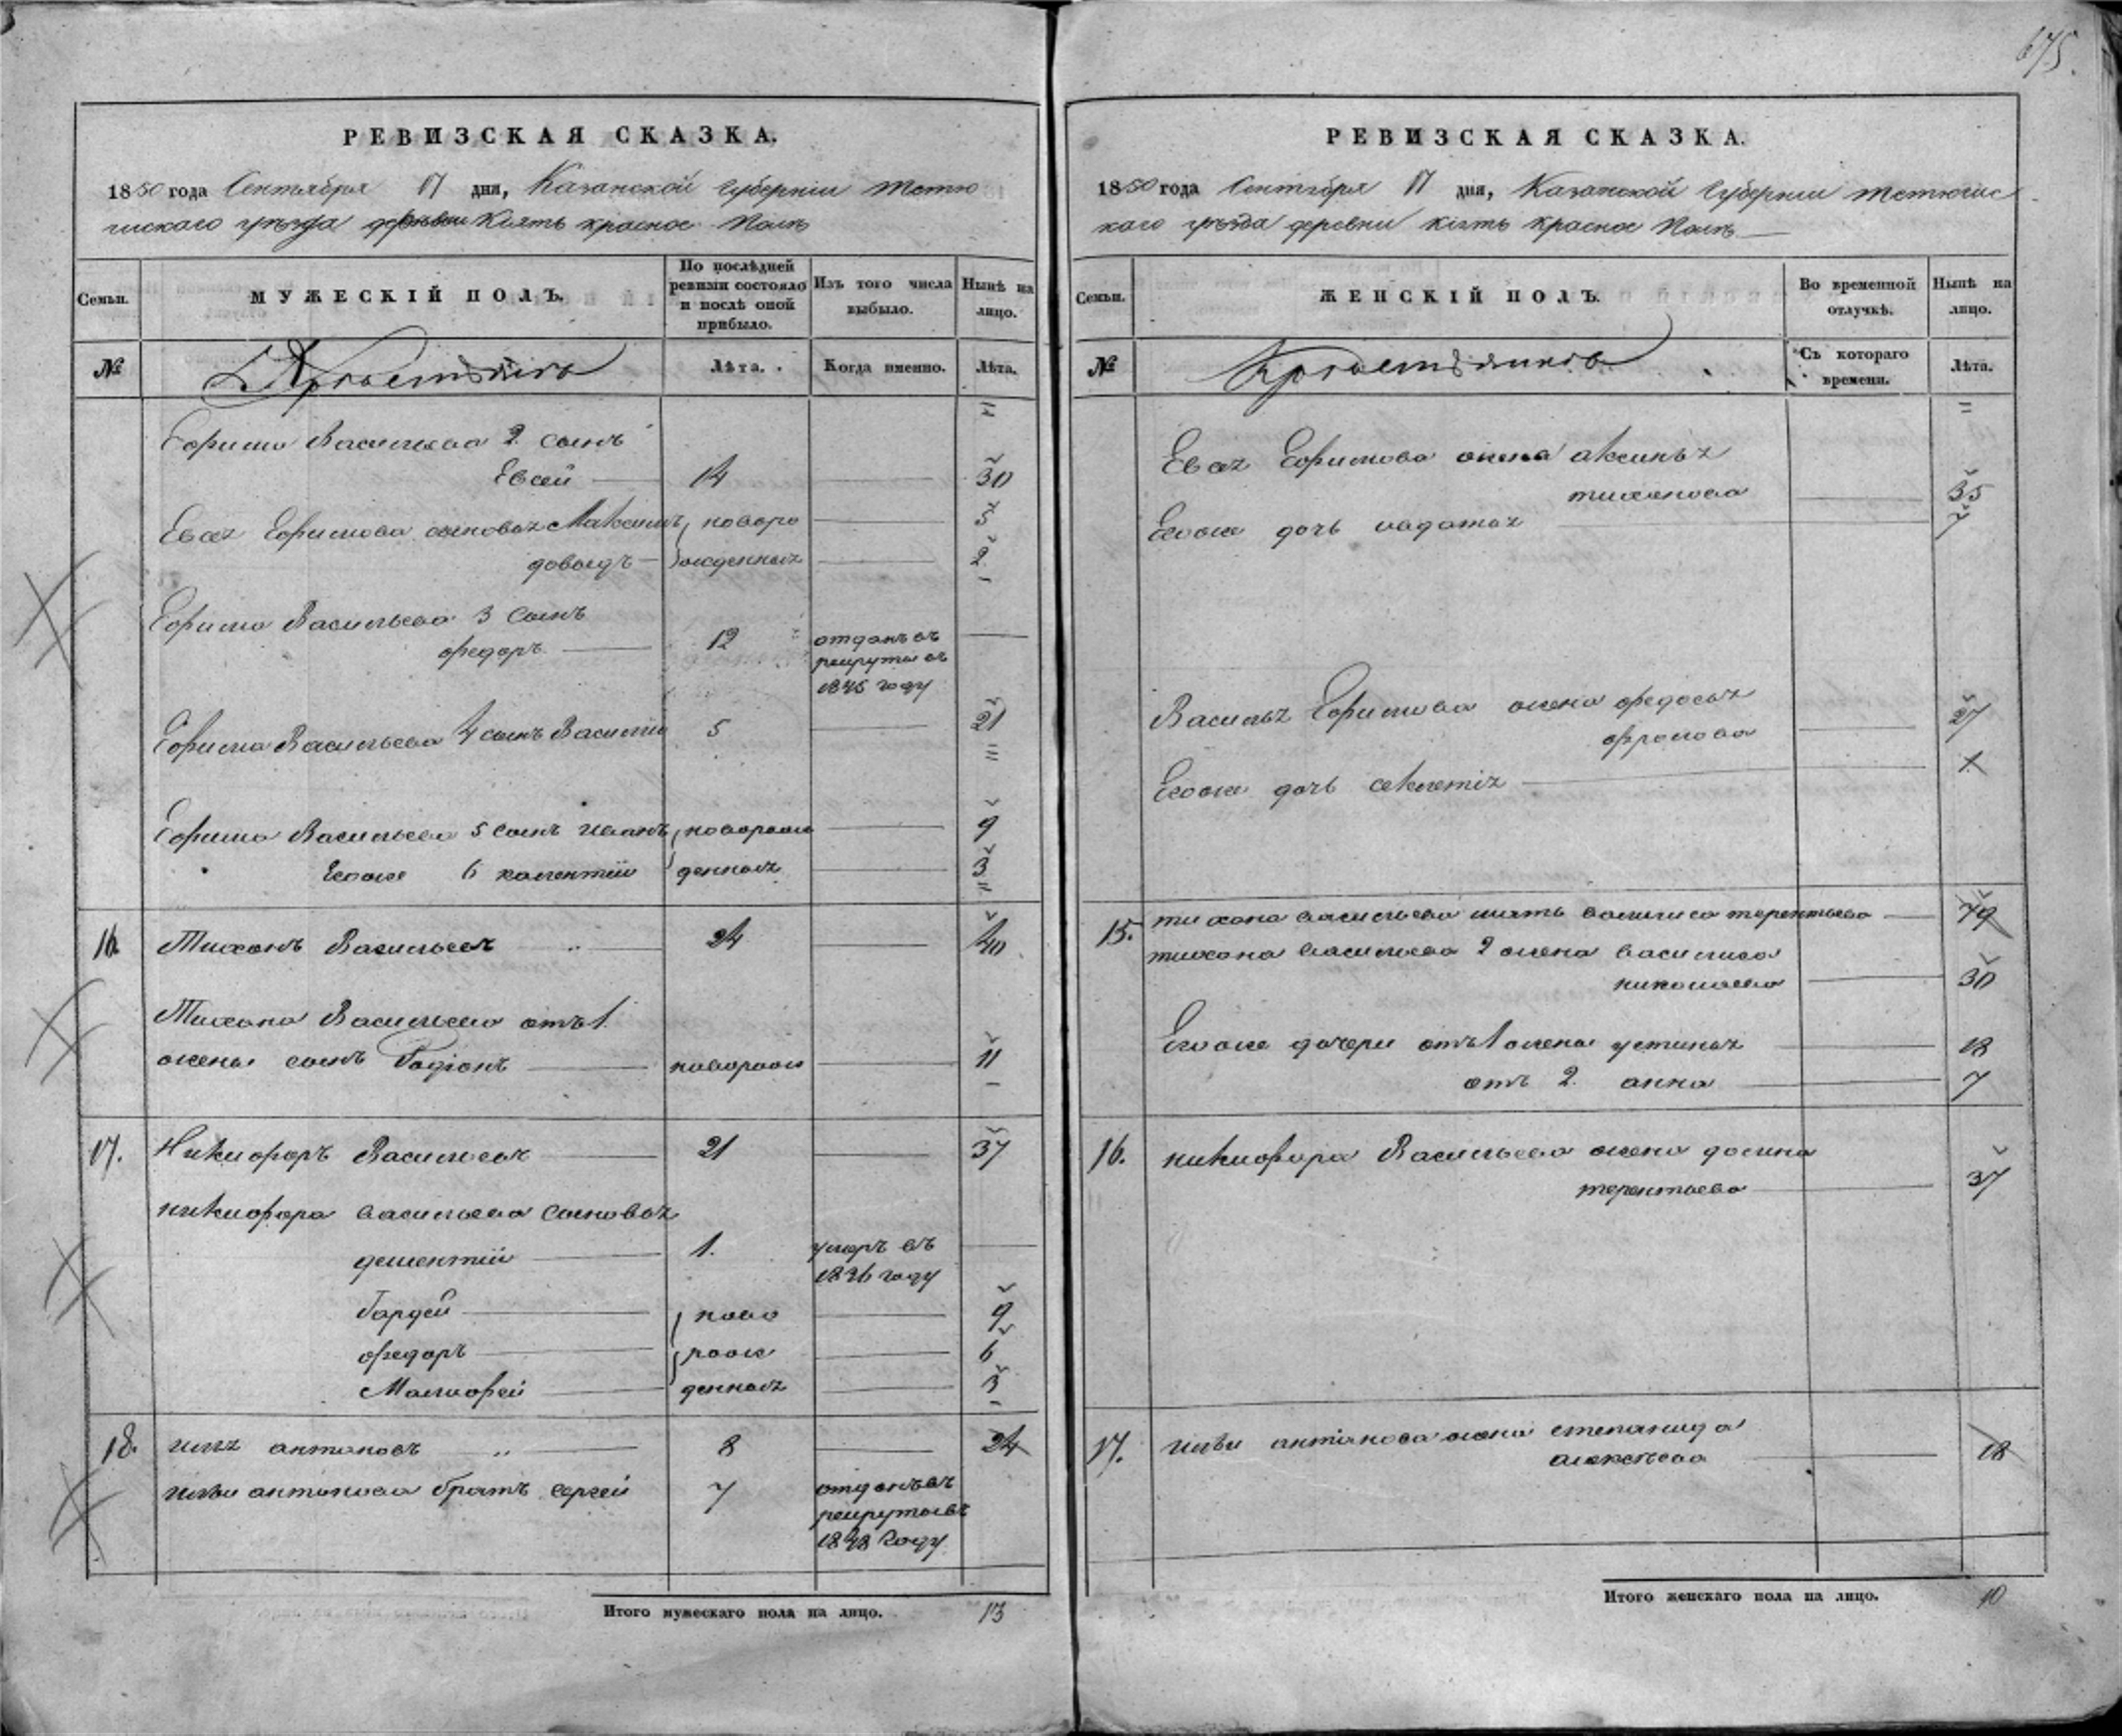 675.
РЕВИЗСКАЯ СКАЗКА.
1850 года Сентября 17 дня, Казанской губернии Тетю
шскаго уѣзда деревни Кіять красное Поль
Семьи.
МУЖЕСКІЙ ПОЛЪ.
По послѣдней ревизіи состояло и послѣ оной прибыло.
Изъ того числа выбыло.
Нынѣ на лицо.
№
Лѣта.
Когда именно.
Лѣта.
Ефима Васильева 2 сынъ
Евсей 14 30
Евсея Ефимова сыновья Максимъ новоро 5
довыдъ жденныя 2
Ефима Васильева 3 сынъ
федоръ 12 отданъ въ
рекруты въ
1845 году
Ефима Васильева 4 сынъ Василій 5 21
Ефима Васильева 5 сынъ иванъ новорож 9
Его же 6 денныя 3
16. Тихонъ Васильевъ 24 40
Тихона Васильева отъ 1.
жены сынъ Родіонъ новорож 11
17. Никифоръ Васильевъ 21 37
никифора васильева сыновья
дементій 1. умеръ въ
1836 году
Гордей ново 9
федоръ рож 6
денныя 3
18. илья антоновъ 8 24
ильи антонова братъ сергей 7 отданъ въ
рекруты въ
1848 году
Итого мужескаго пола на лицо. 13
РЕВИЗСКАЯ СКАЗКА.
1850 года Сентября 17 дня, Казанской Губерніи тетюшс
каго уѣзда деревни кіять красное Поль
Семьи.
ЖЕНСКІЙ ПОЛЪ.
Во временной отлучкѣ.
Нынѣ на лицо.
№
Съ котораго времени.
Лѣта.
Евсея Ефимова жена аксинья
тихонова 35
Его же дочь 7
Василья Ефимова жена федосья
27
Его же дочь 1
15. тихона васильева мать василиса терентьева 79
тихона васильева 2 жена василиса
николаева 30
Его же дочери отъ 1 жены устинья 18
отъ 2. анна 7
16. никифора Васильева жена домна
терентьева 37
17. ильи антонова жена степанида
алексѣева 18
Итого женскаго пола на лицо. 10